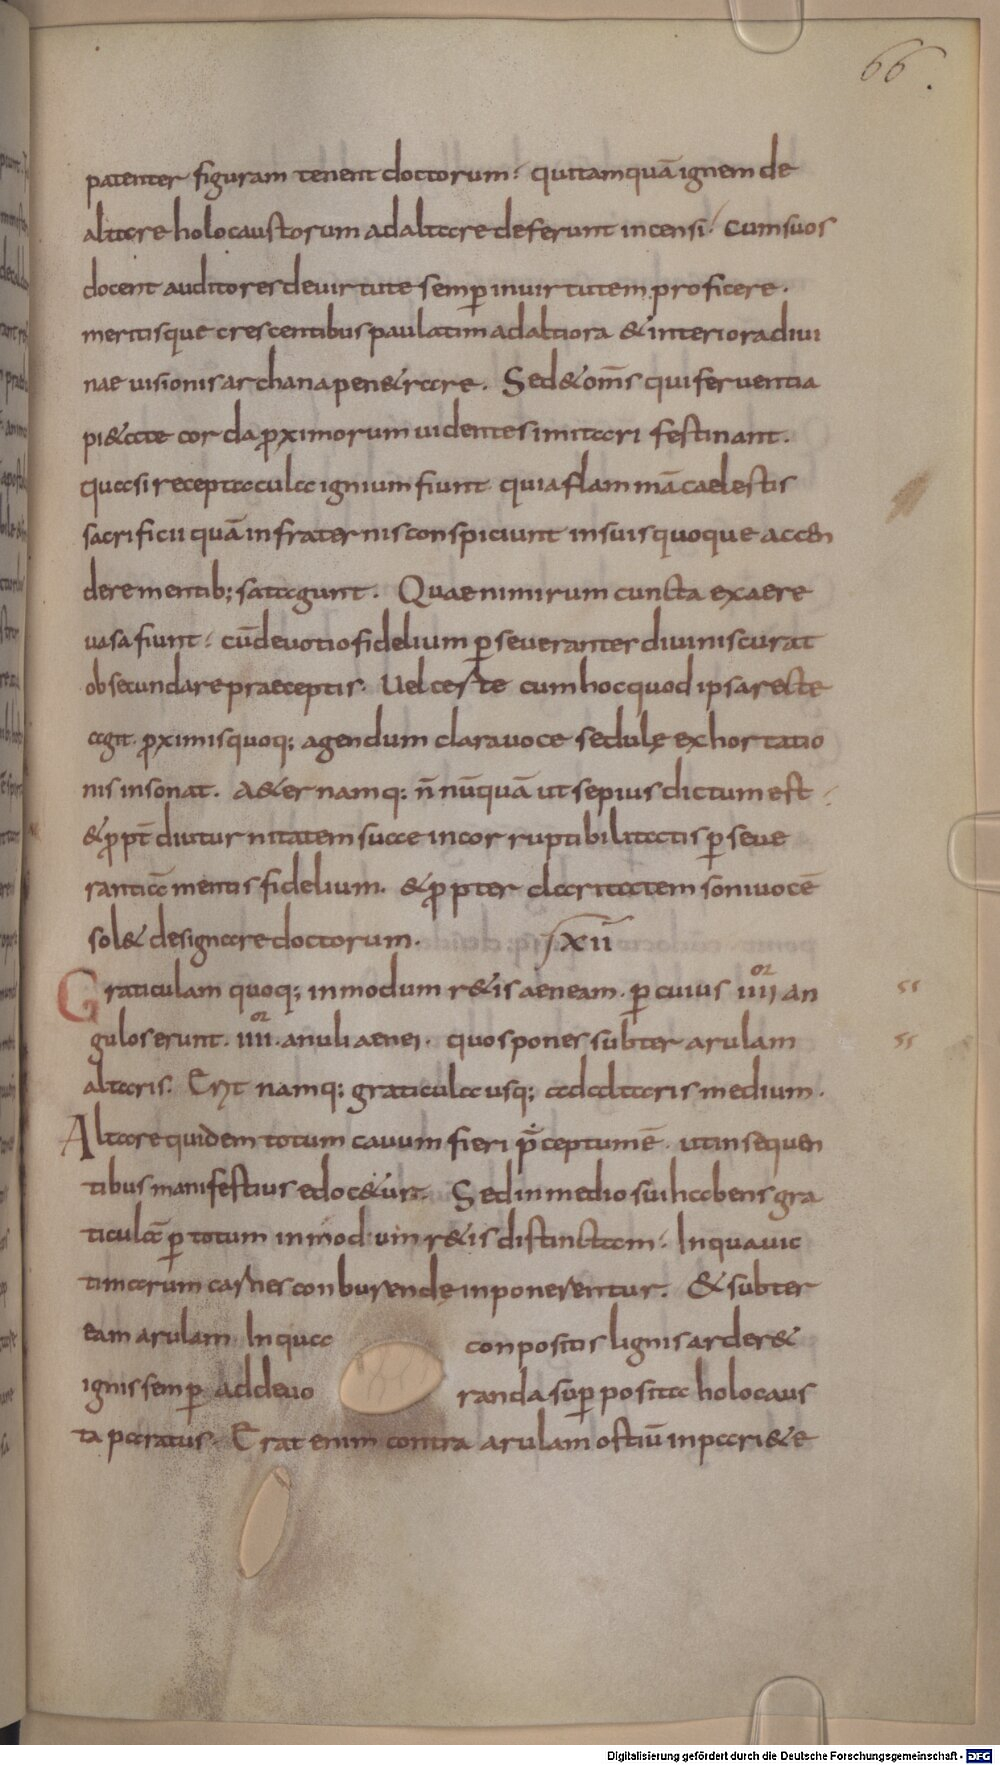 66.
patenter figuram tenent doctorum· quitamquā ignem de
altare holocaustorum ad altare deferunt incensi· cum suos
docent auditores de uirtute semp in uirtutem proficere·
meritisque crescentibus paulatim ad altiora & interiora diui
nae uisionis archana pen&rare· Sed & om̄s qui feruentia
pi&ate corda proximorum uidentes imitari festinant·
quasi receptacula ignium fiunt· quia flammā caelestis
sacrificii quā in fraternis conspiciunt in suis quoque accen
dere mentib; satagunt· Quae nimirum cuncta ex aere
uasa fiunt· cū deuotio fidelium p̄seueranter diuinis curat
obsecundare praeceptis· Uel certe cum hoc quod ipsa recte
agit· proximis quoq; agendum clara uoce sedulę exhortatio
nis insonat· A&er namq; n̄ nūquā ut sepius dictum est·
& prop̄t diuturnitatem suae incorruptibilitatis p̄seue
rantiā mentis fidelium· & propter claritatem soni uocē
sol& designare doctorum· xii
Graticulam quoq; in modum r&is aeneam· p̄ cuius iiii or an
gulos erunt· iiii or· anuli aenei· quos pones subter arulam ss
altaris· Erit namq; graticula usq; ad altaris medium· ss
Altare quidem totum cauum fieri p̄ceptum ē· ut in sequen
tibus manifestius edoc&ur· Sed in medio sui habens gra
ticulā p̄ totum in modum r&is distinctam· In qua uic
timarum carnes conburendę inponerentur· & subter
eam arulam· In qua conpositis lignis arder&
ignis semp̄ ad deuoranda sup̄posita holocaus
ta paratus· Erat enim contra arulam ostiū in pari&e
Digitalisierung gefördert durch die Deutsche Forschungsgemeinschaft - DFG